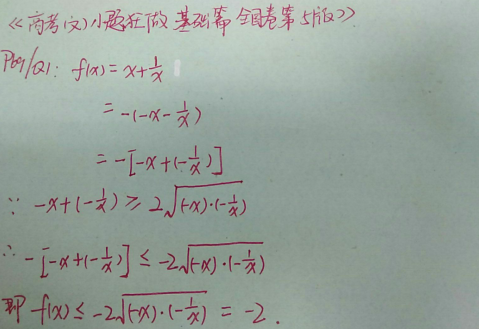 《高考(文)小题狂做 基础篇 全国卷第5版》
P69/Q1: f(x)=x+1/x
=-(-x-1/x)
=-[-x+(-1/x)]
∵ -x+(-1/x)≥2√(-x)·(-1/x)
∴ -[-x+(-1/x)]≤-2√(-x)·(-1/x)
即 f(x)≤-2√(-x)·(-1/x) = -2.